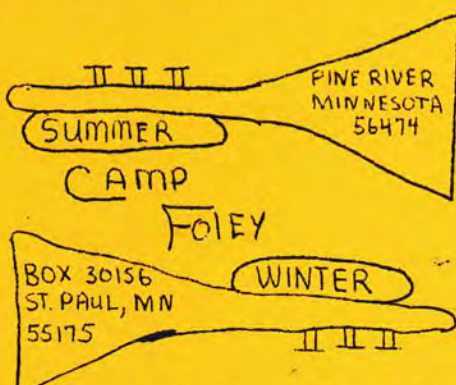 PINE RIVER
MINNESOTA
56474
SUMMER
CAMP
FOlEY
BOX 30156
ST. PAUL, MN
55175
WINTER